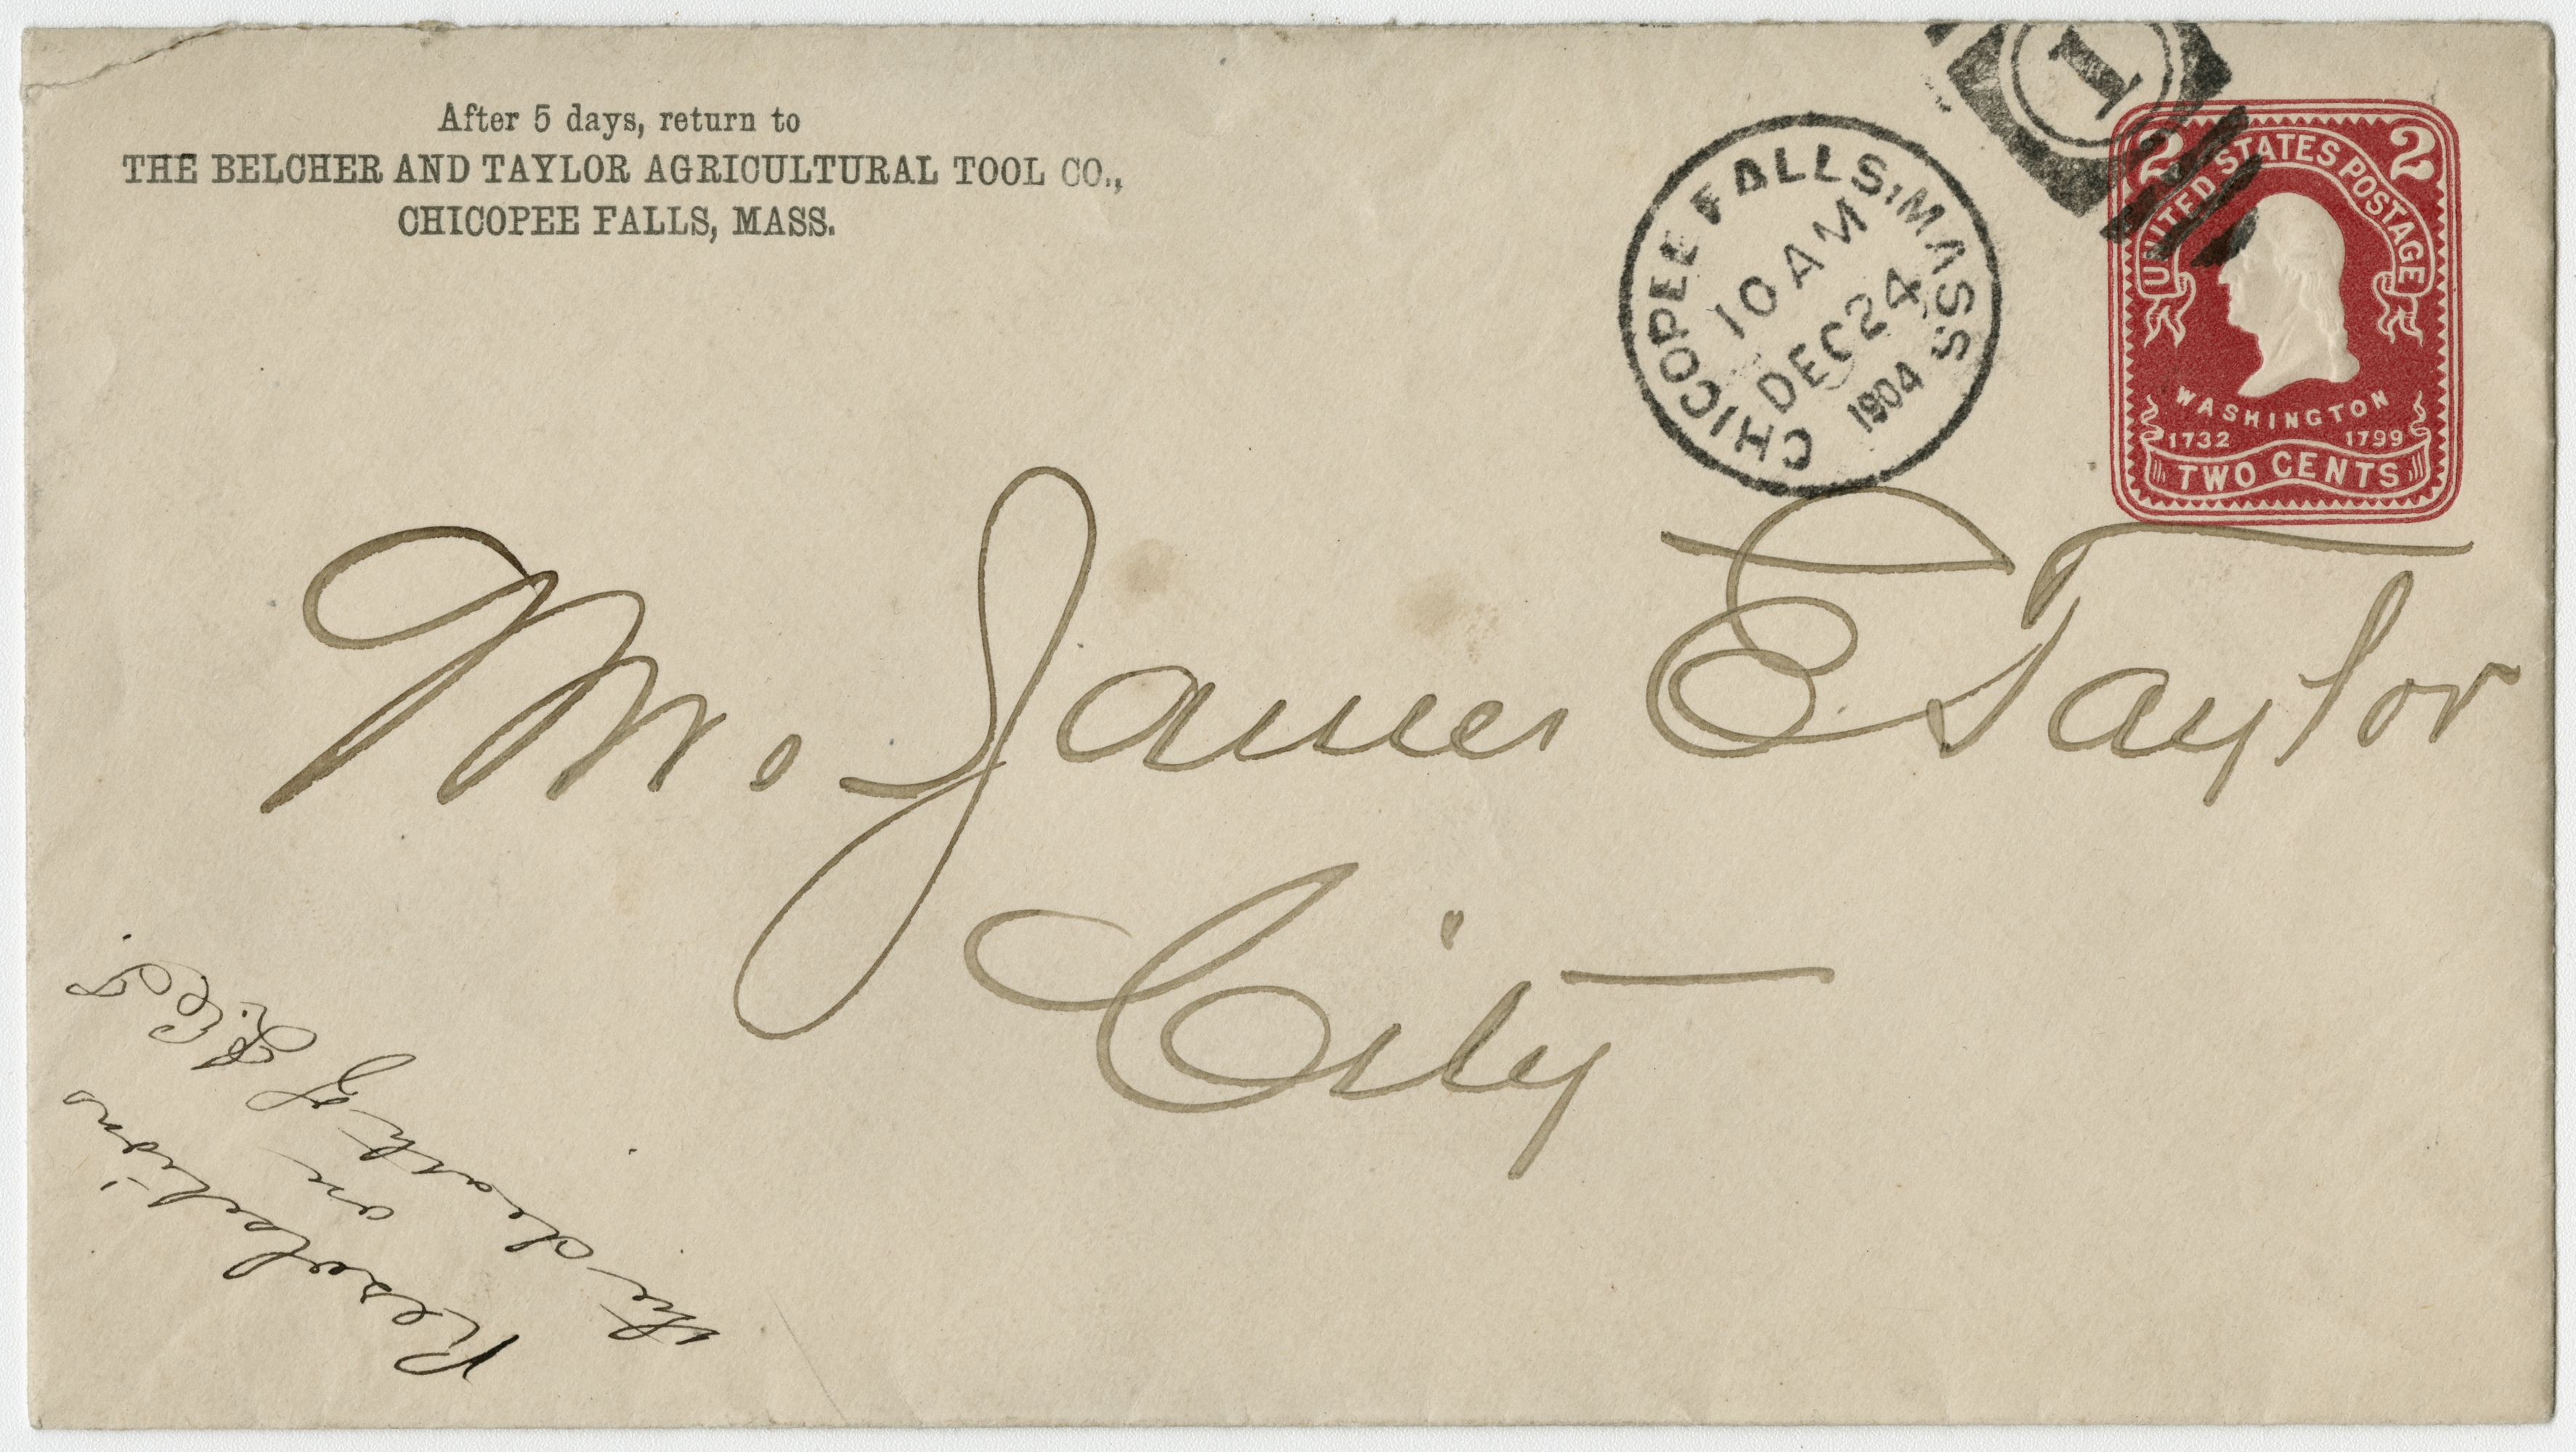 After 5 days, return to
THE BELCHER AND TAYLOR AGRICULTURAL TOOL CO.,
CHICOPEE FALLS, MASS.
CHICOPEE FALLS, MASS
10 AM
DEC 24
1904
1
2 2
UNITED STATES POSTAGE
WASHINGTON
1732 1799
TWO CENTS
Mr. James E Taylor
City
Resolutions
on
the death of